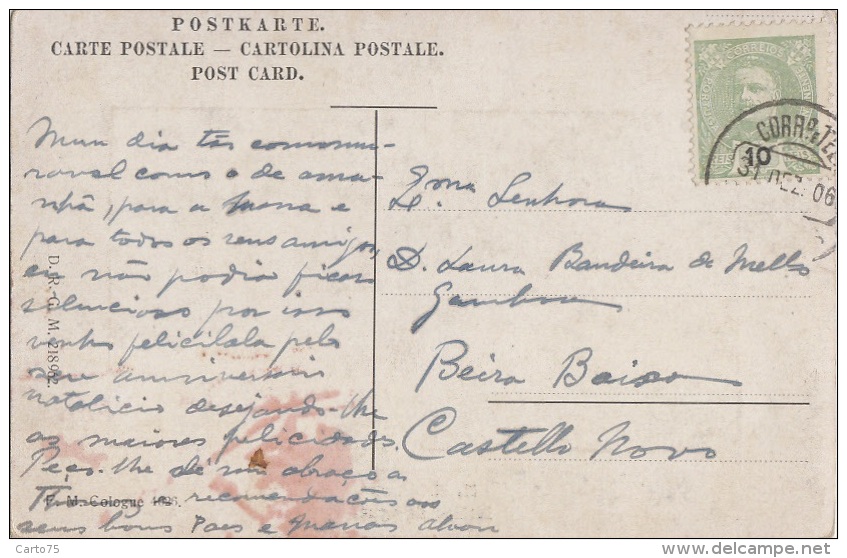 POSTKARTE.
CARTE POSTALE — CARTOLINA POSTALE.
POST CARD.
CORREIOS
REIS
10
CORRº E TEL
31 DEZ. 06
Num dia tão commemo-
ravel como o de ama-
nhã, para a Mana e
para todos os seus amigos,
eu não podia ficar
silencioso por isso
venho felicital-a pelo
seu anniversario
natalicio desejando-lhe
as maiores felicidades.
Peço-lhe dê um abraço
recomendações aos
seus bons Paes e Manas
Exma Senhora
D. Laura Bandeira de Mello
Gamboa
Beira Baixa
Castello Novo
D. R. G. M. 21892.
F. M. Cologne
Carto75
http://www.delcampe.net